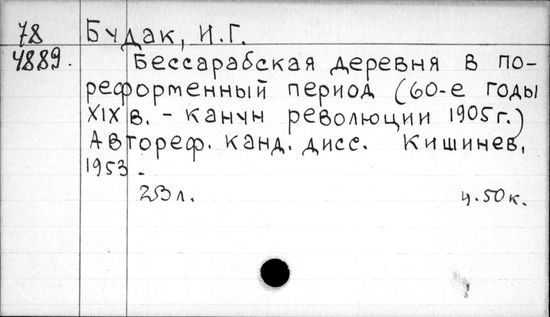 78
4889.
Будак, И.Г.
Бессарабская деревня в по-
реформенный период (60-е годы
XIX в. - канун революции 1905г.)
Автореф. канд. дисс. Кишинев,
1953.
253л. ц.50к.